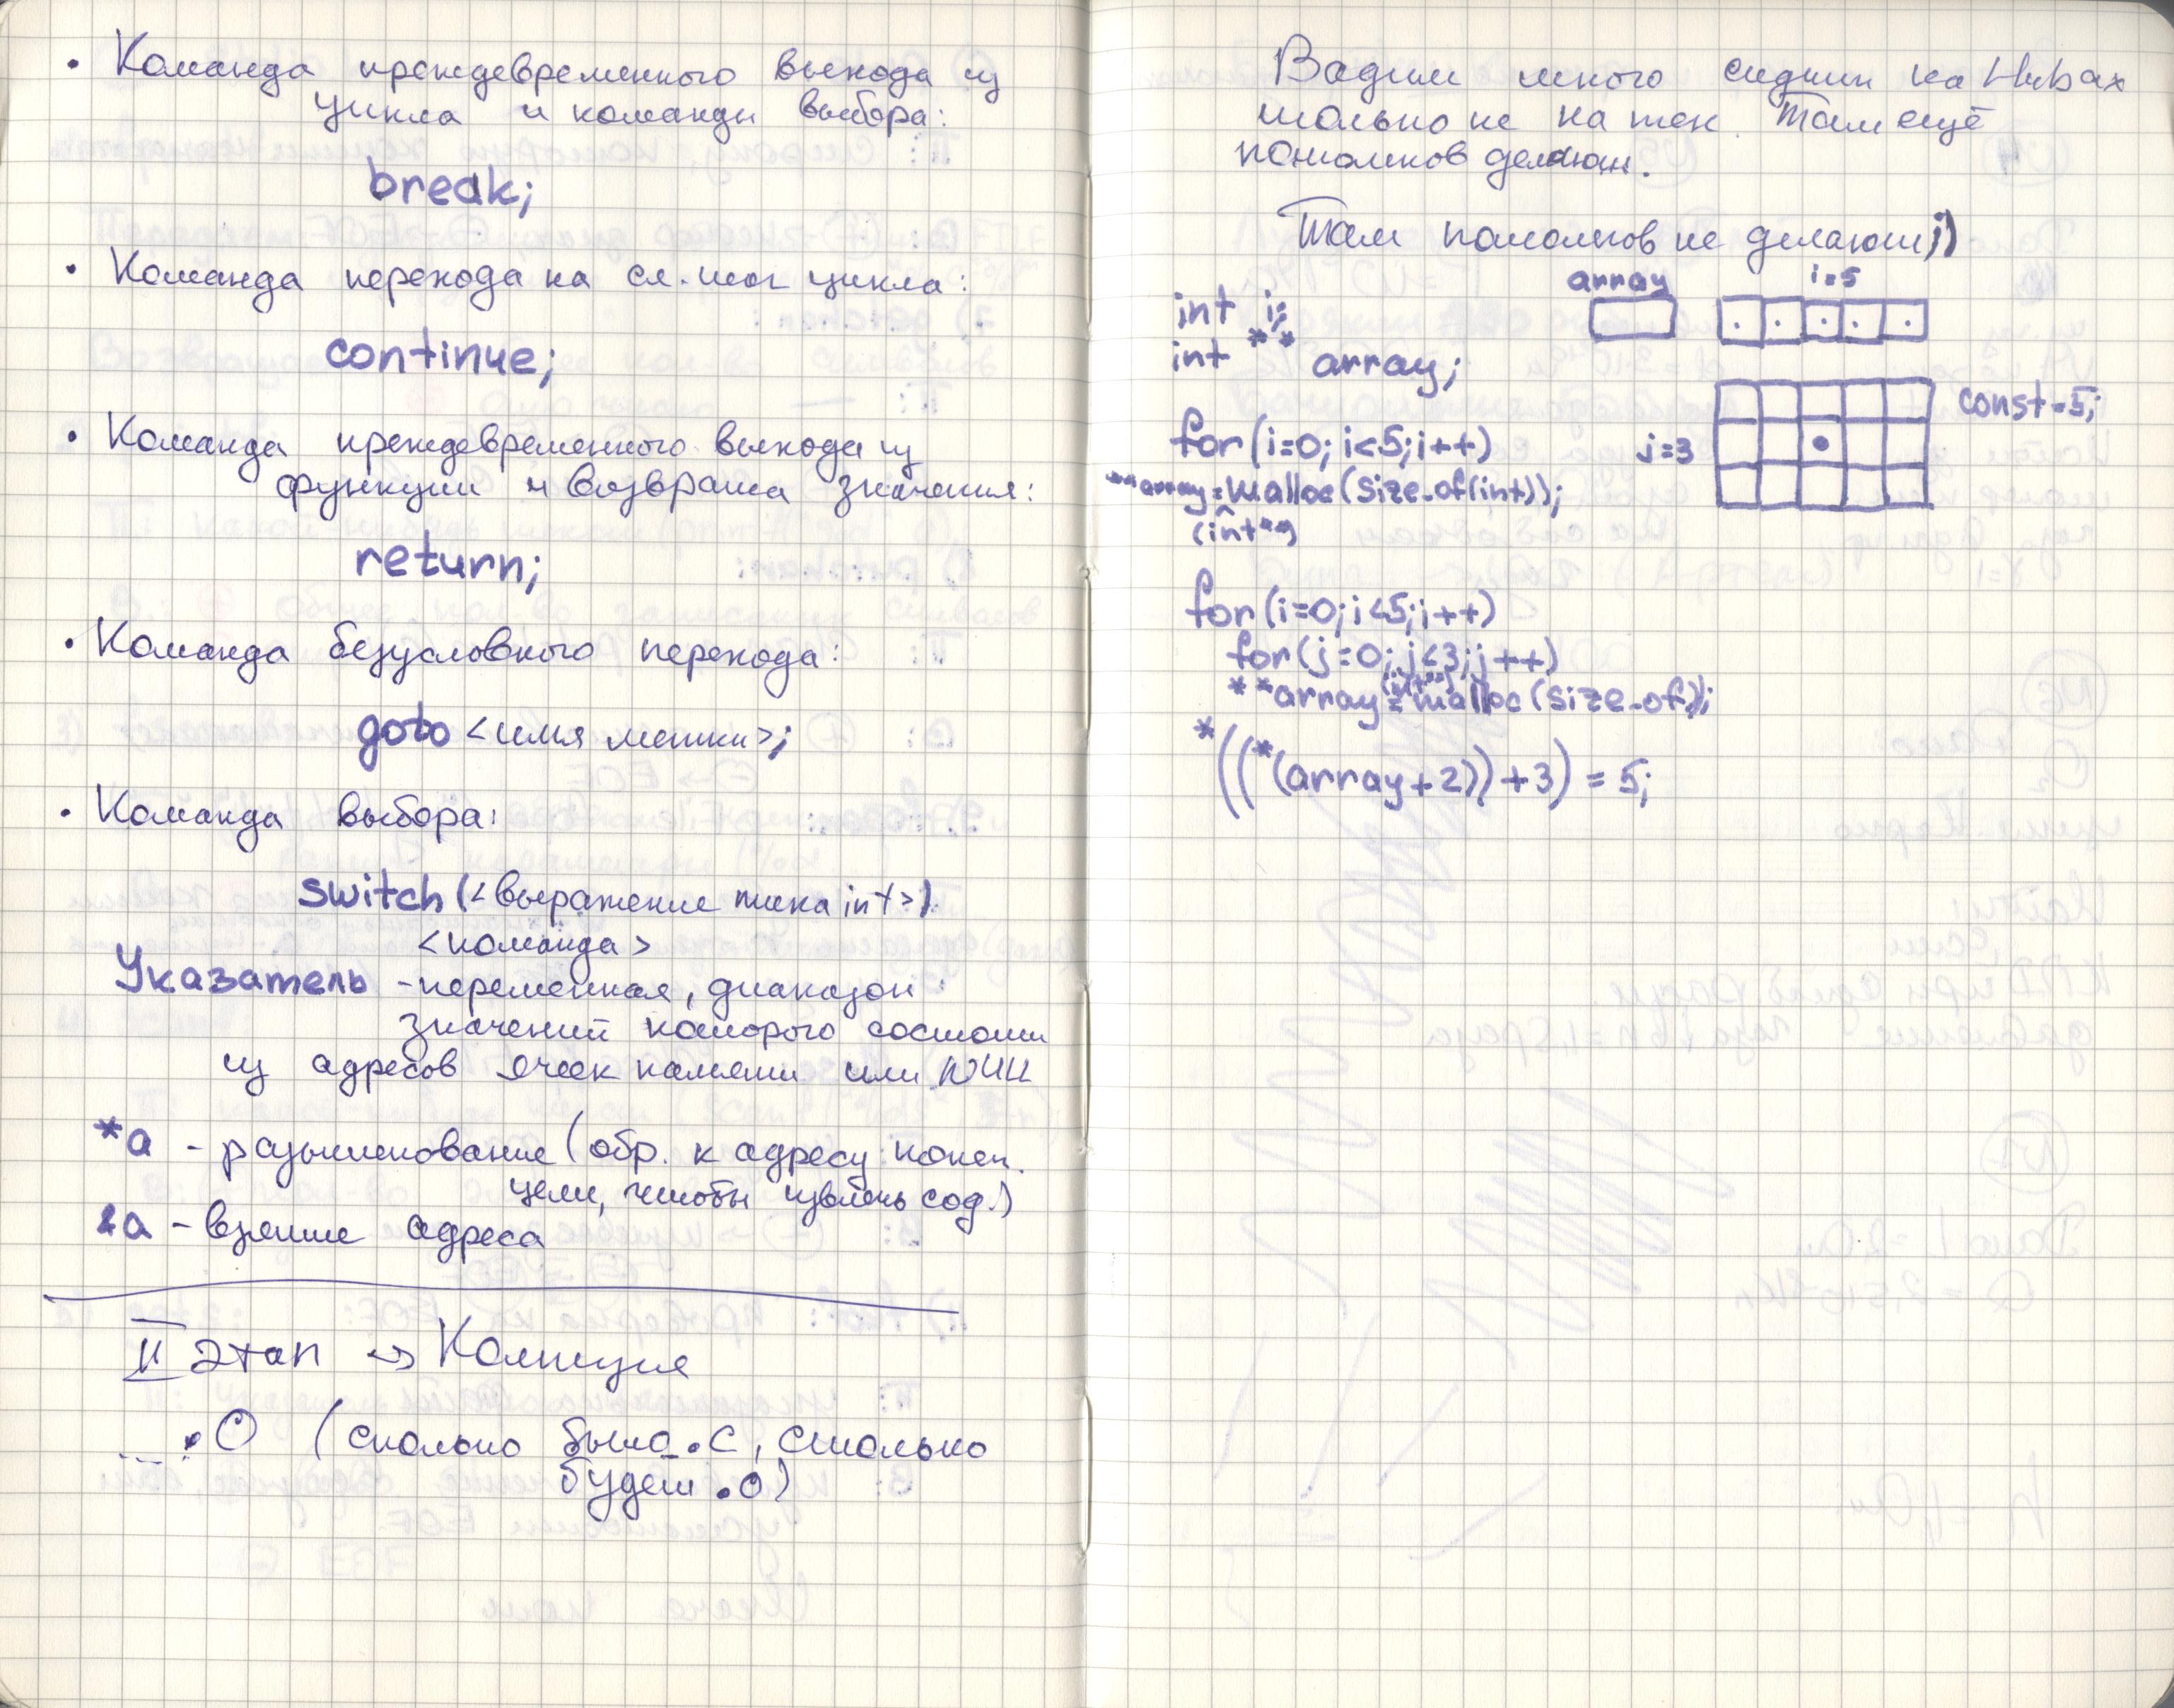 • Команда преждевременного выхода из
цикла и команды выбора:
break;
• Команда перехода на сл. шаг цикла:
continue;
• Команда преждевременного выхода из
функции и возврата значения:
return;
• Команда безусловного перехода:
goto <имя метки>;
• Команда выбора:
switch (<выражение типа int>)
<команда>
Указатель - переменная, диапазон
значений которого состоит
из адресов ячеек памяти или NULL
*a - разыменование (обр. к адресу конеч.
цели, чтобы извлечь сод.)
&a - взятие адреса
II этап ↔
.O (сколько было .c, столько
будет .o)
Вадим много сидит на Нивах
только не на тех. Там ещё
потолков делают.
Там потолков не делают;)
array i=5
int i;
int ** array;
const=5;
for(i=0; i<5; i++)
j=3
**array=malloc(size_of(int));
(int**)
for(i=0; i<5; i++)
for(j=0; j<3; j++)
(int**)
**array=malloc(size_of);
*((*(array+2))+3) = 5;